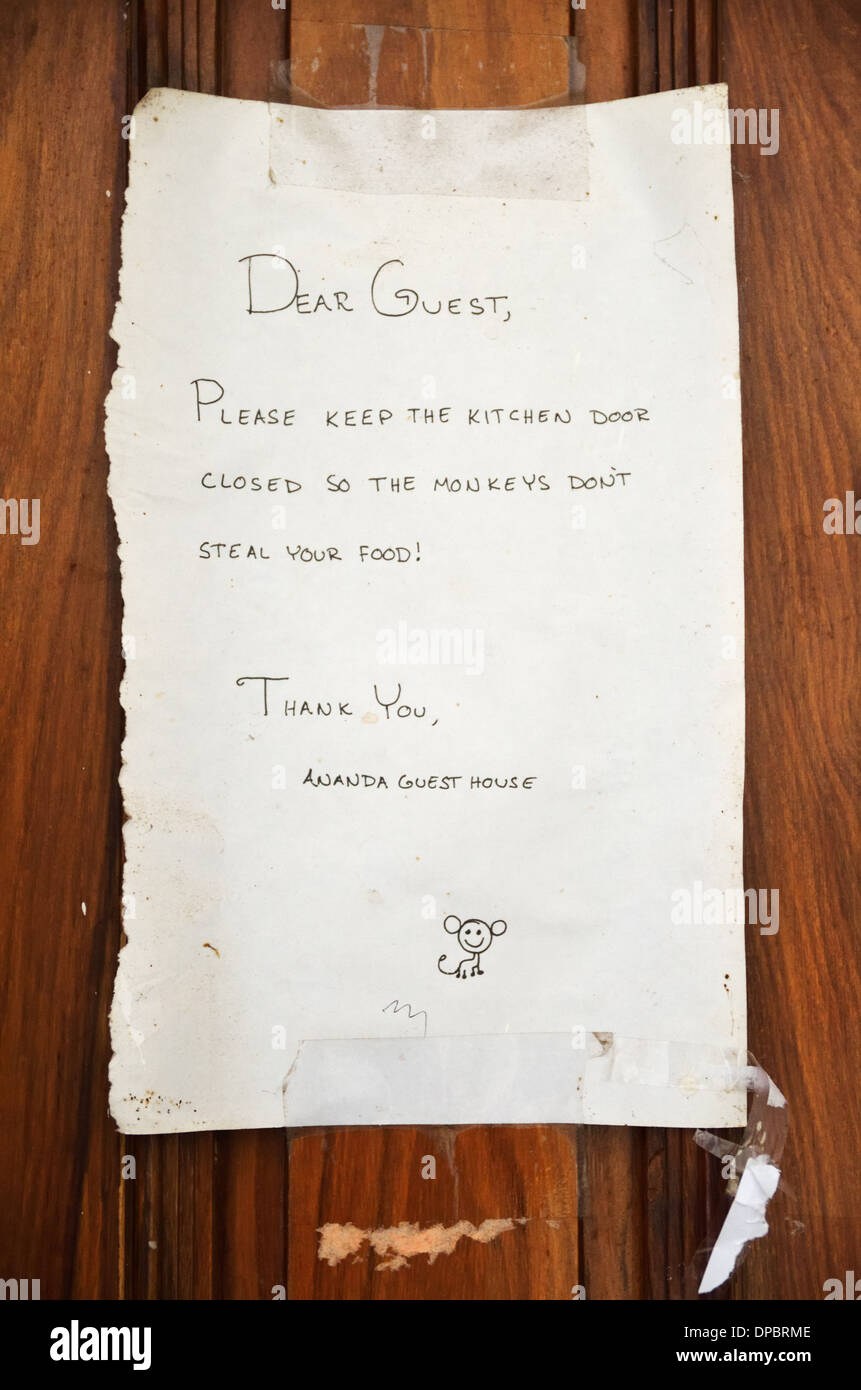 DEAR GUEST,
PLEASE KEEP THE KITCHEN DOOR
CLOSED SO THE MONKEYS DON'T
STEAL YOUR FOOD!
THANK YOU,
ANANDA GUEST HOUSE
alamy
a
alamy stock photo
DPBRME
www.alamy.com